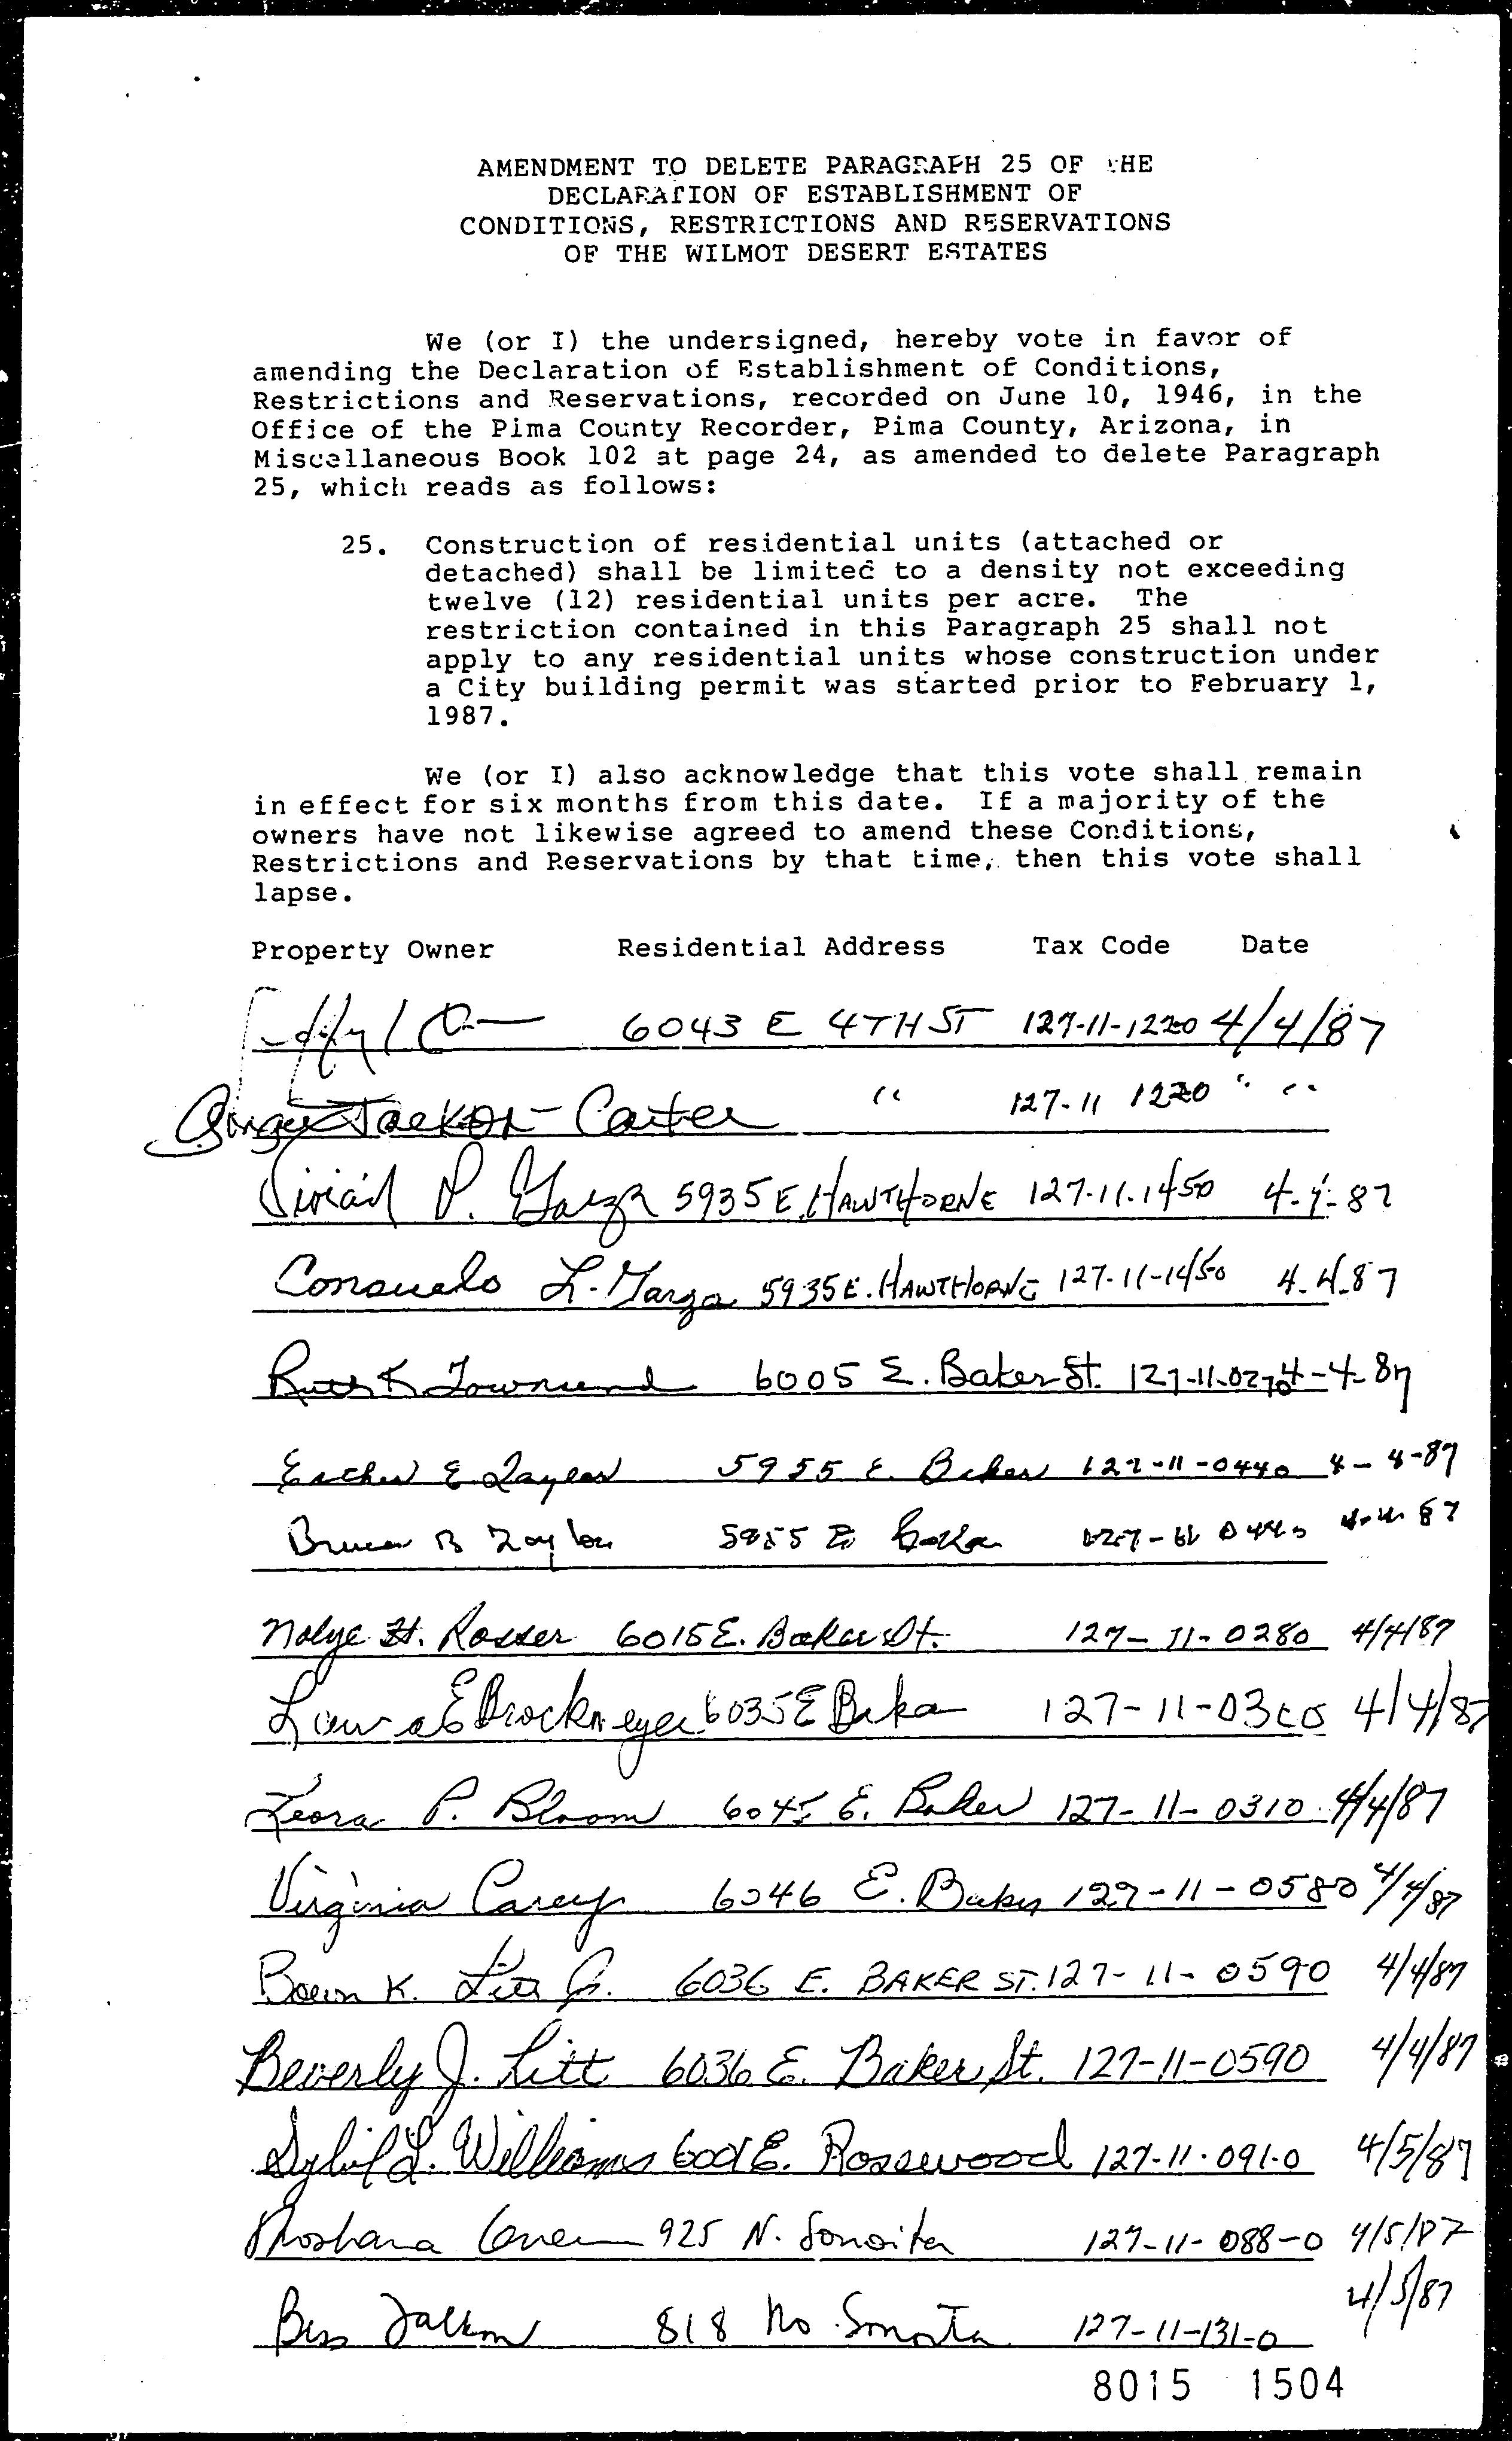 AMENDMENT TO DELETE PARAGRAPH 25 OF THE
DECLARATION OF ESTABLISHMENT OF
CONDITIONS, RESTRICTIONS AND RESERVATIONS
OF THE WILMOT DESERT ESTATES
We (or I) the undersigned, hereby vote in favor of
amending the Declaration of Establishment of Conditions,
Restrictions and Reservations, recorded on June 10, 1946, in the
Office of the Pima County Recorder, Pima County, Arizona, in
Miscellaneous Book 102 at page 24, as amended to delete Paragraph
25, which reads as follows:
25. Construction of residential units (attached or
detached) shall be limited to a density not exceeding
twelve (12) residential units per acre. The
restriction contained in this Paragraph 25 shall not
apply to any residential units whose construction under
a City building permit was started prior to February 1,
1987.
We (or I) also acknowledge that this vote shall remain
in effect for six months from this date. If a majority of the
owners have not likewise agreed to amend these Conditions,
Restrictions and Reservations by that time, then this vote shall
lapse.
Property Owner Residential Address Tax Code Date
6043 E 4TH ST 127-11-1220 4/4/87
Carter " 127-11 1220 " "
P. Garza 5935 E. HAWTHORNE 127-11-1450 4-4-87
Consuelo L. Garza 5935 E. HAWTHORNE 127-11-1450 4-4-87
Ruth K Townsend 6005 E. Baker St. 127-11-0270 4-4-87
Esther E Taylor 5955 E. Baker 127-11-0440 4-4-87
Bruce B Taylor 5955 E Baker 127-11 0440 4-4-87
H. Rosser 6015 E. Baker St. 127-11-0280 4/4/87
E Brockmeyer 6035 E Baker 127-11-0300 4/4/87
Leora P. Bloom 6045 E. Baker 127-11-0310 4/4/87
Virginia Carey 6046 E. Baker 127-11-0580 4/4/87
K. Litt Jr. 6036 E. BAKER ST. 127-11-0590 4/4/87
Beverly J. Litt 6036 E. Baker St. 127-11-0590 4/4/87
Sybil L. Williams E. Rosewood 127-11-091-0 4/5/87
Shoshana 925 N. Sonoita 127-11-088-0 4/5/87
Bess 818 No. Sonoita 127-11-131-0 4/5/87
8015 1504